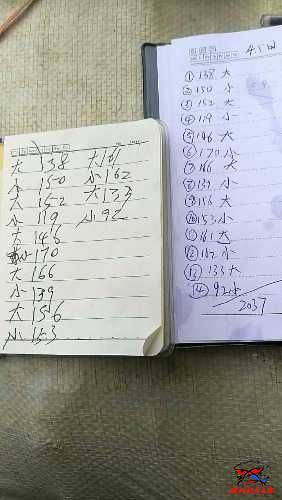 大 138 大161
小 150 小162
大 152 大133
小 119 小92
大 146
小170
大 166
小 139
大 156
小 153
① 138 大
② 150 小
③ 152 大
④ 119 小
⑤ 146 大
⑥ 170 小
⑦ 166 大
⑧ 139 小
⑨ 156 大
⑩ 153 小
⑪ 161 大
⑫ 162 小
⑬ 133 大
⑭ 92小
2037